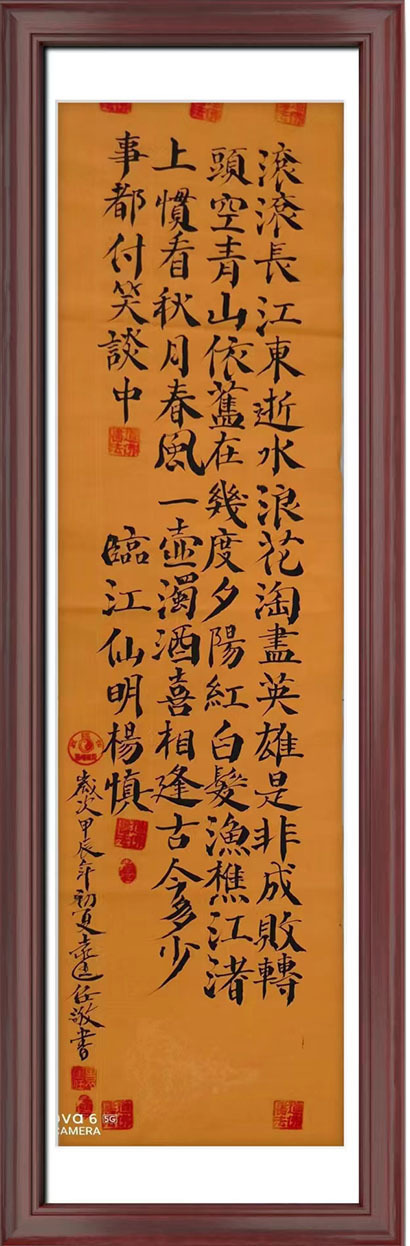 滚滚長江東逝水浪花淘盡英雄是非成敗轉
頭空青山依舊在幾度夕陽紅白髮漁樵江渚
上慣看秋月春風一壺濁酒喜相逢古今多少
事都付笑談中
臨江仙明楊慎
歲次甲辰年初夏任敬書
ova 6 5G
CAMERA